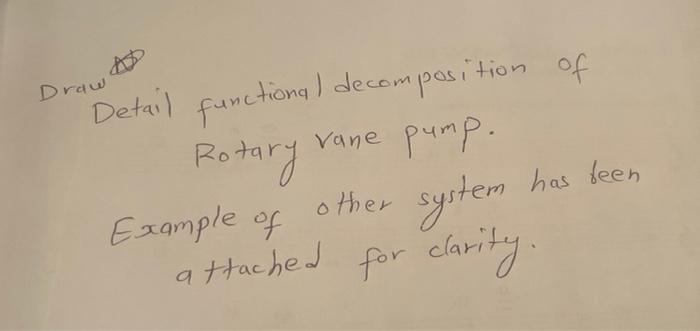 Draw
Detail functional decomposition of
Rotary vane pump.
Example of other system has been
attached for clarity.